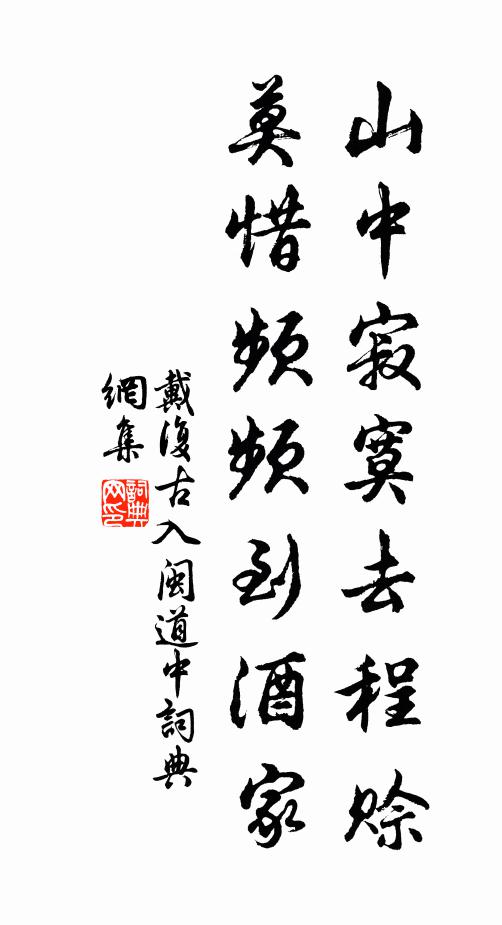 山中寂寞去程賒
莫惜頻頻到酒家
戴復古入閩道中詞典
網集
詞典
网印